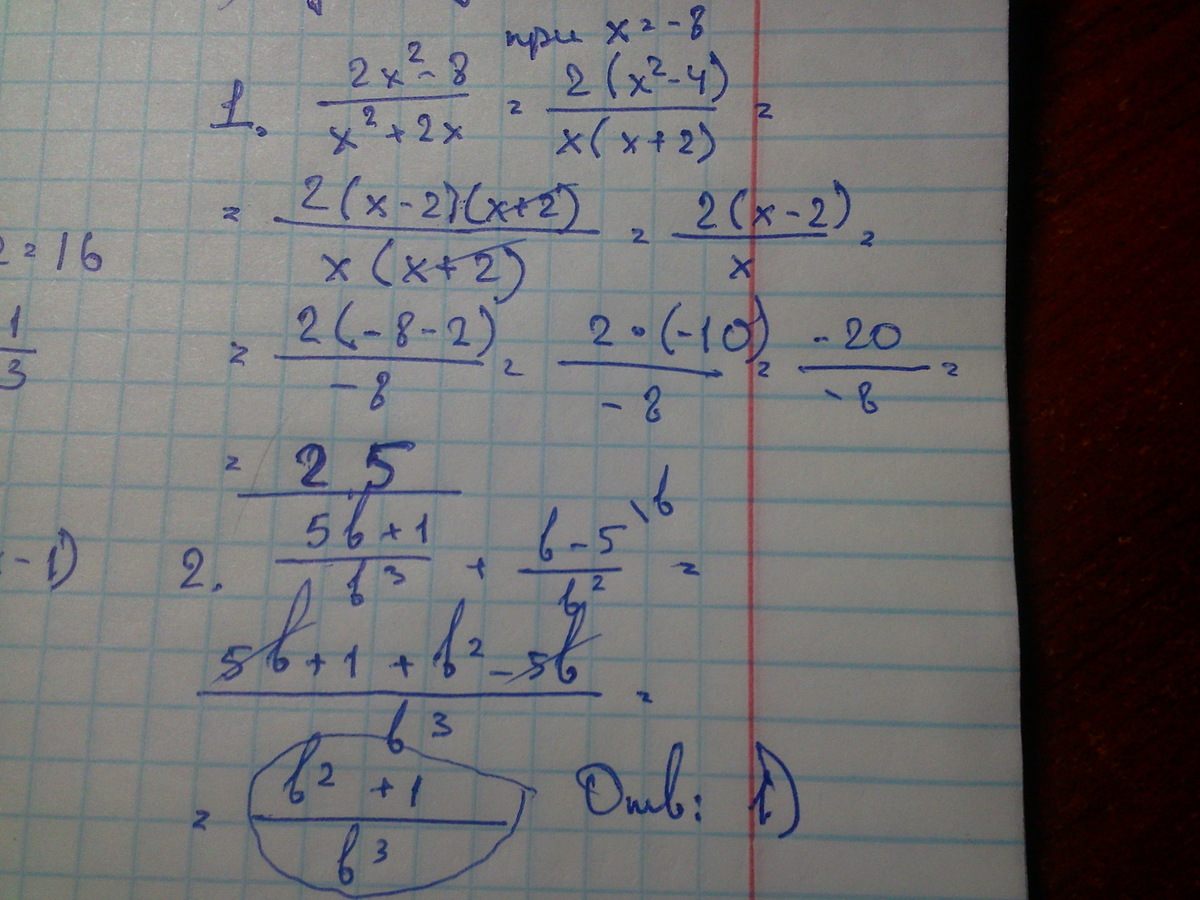 при x = -8
1. (2x² - 8)/(x² + 2x) = 2(x² - 4)/(x(x + 2)) =
= 2(x - 2)(x + 2)/(x(x + 2)) = 2(x - 2)/x =
2 = 16
= 2(-8 - 2)/-8 = 2 · (-10)/-8 = -20/-8 =
1/3
= 2,5
2. (5b + 1)/b³ + (b - 5)/b² \b =
- 1)
(5b + 1 + b² - 5b)/b³ =
= (b² + 1)/b³ Отв: